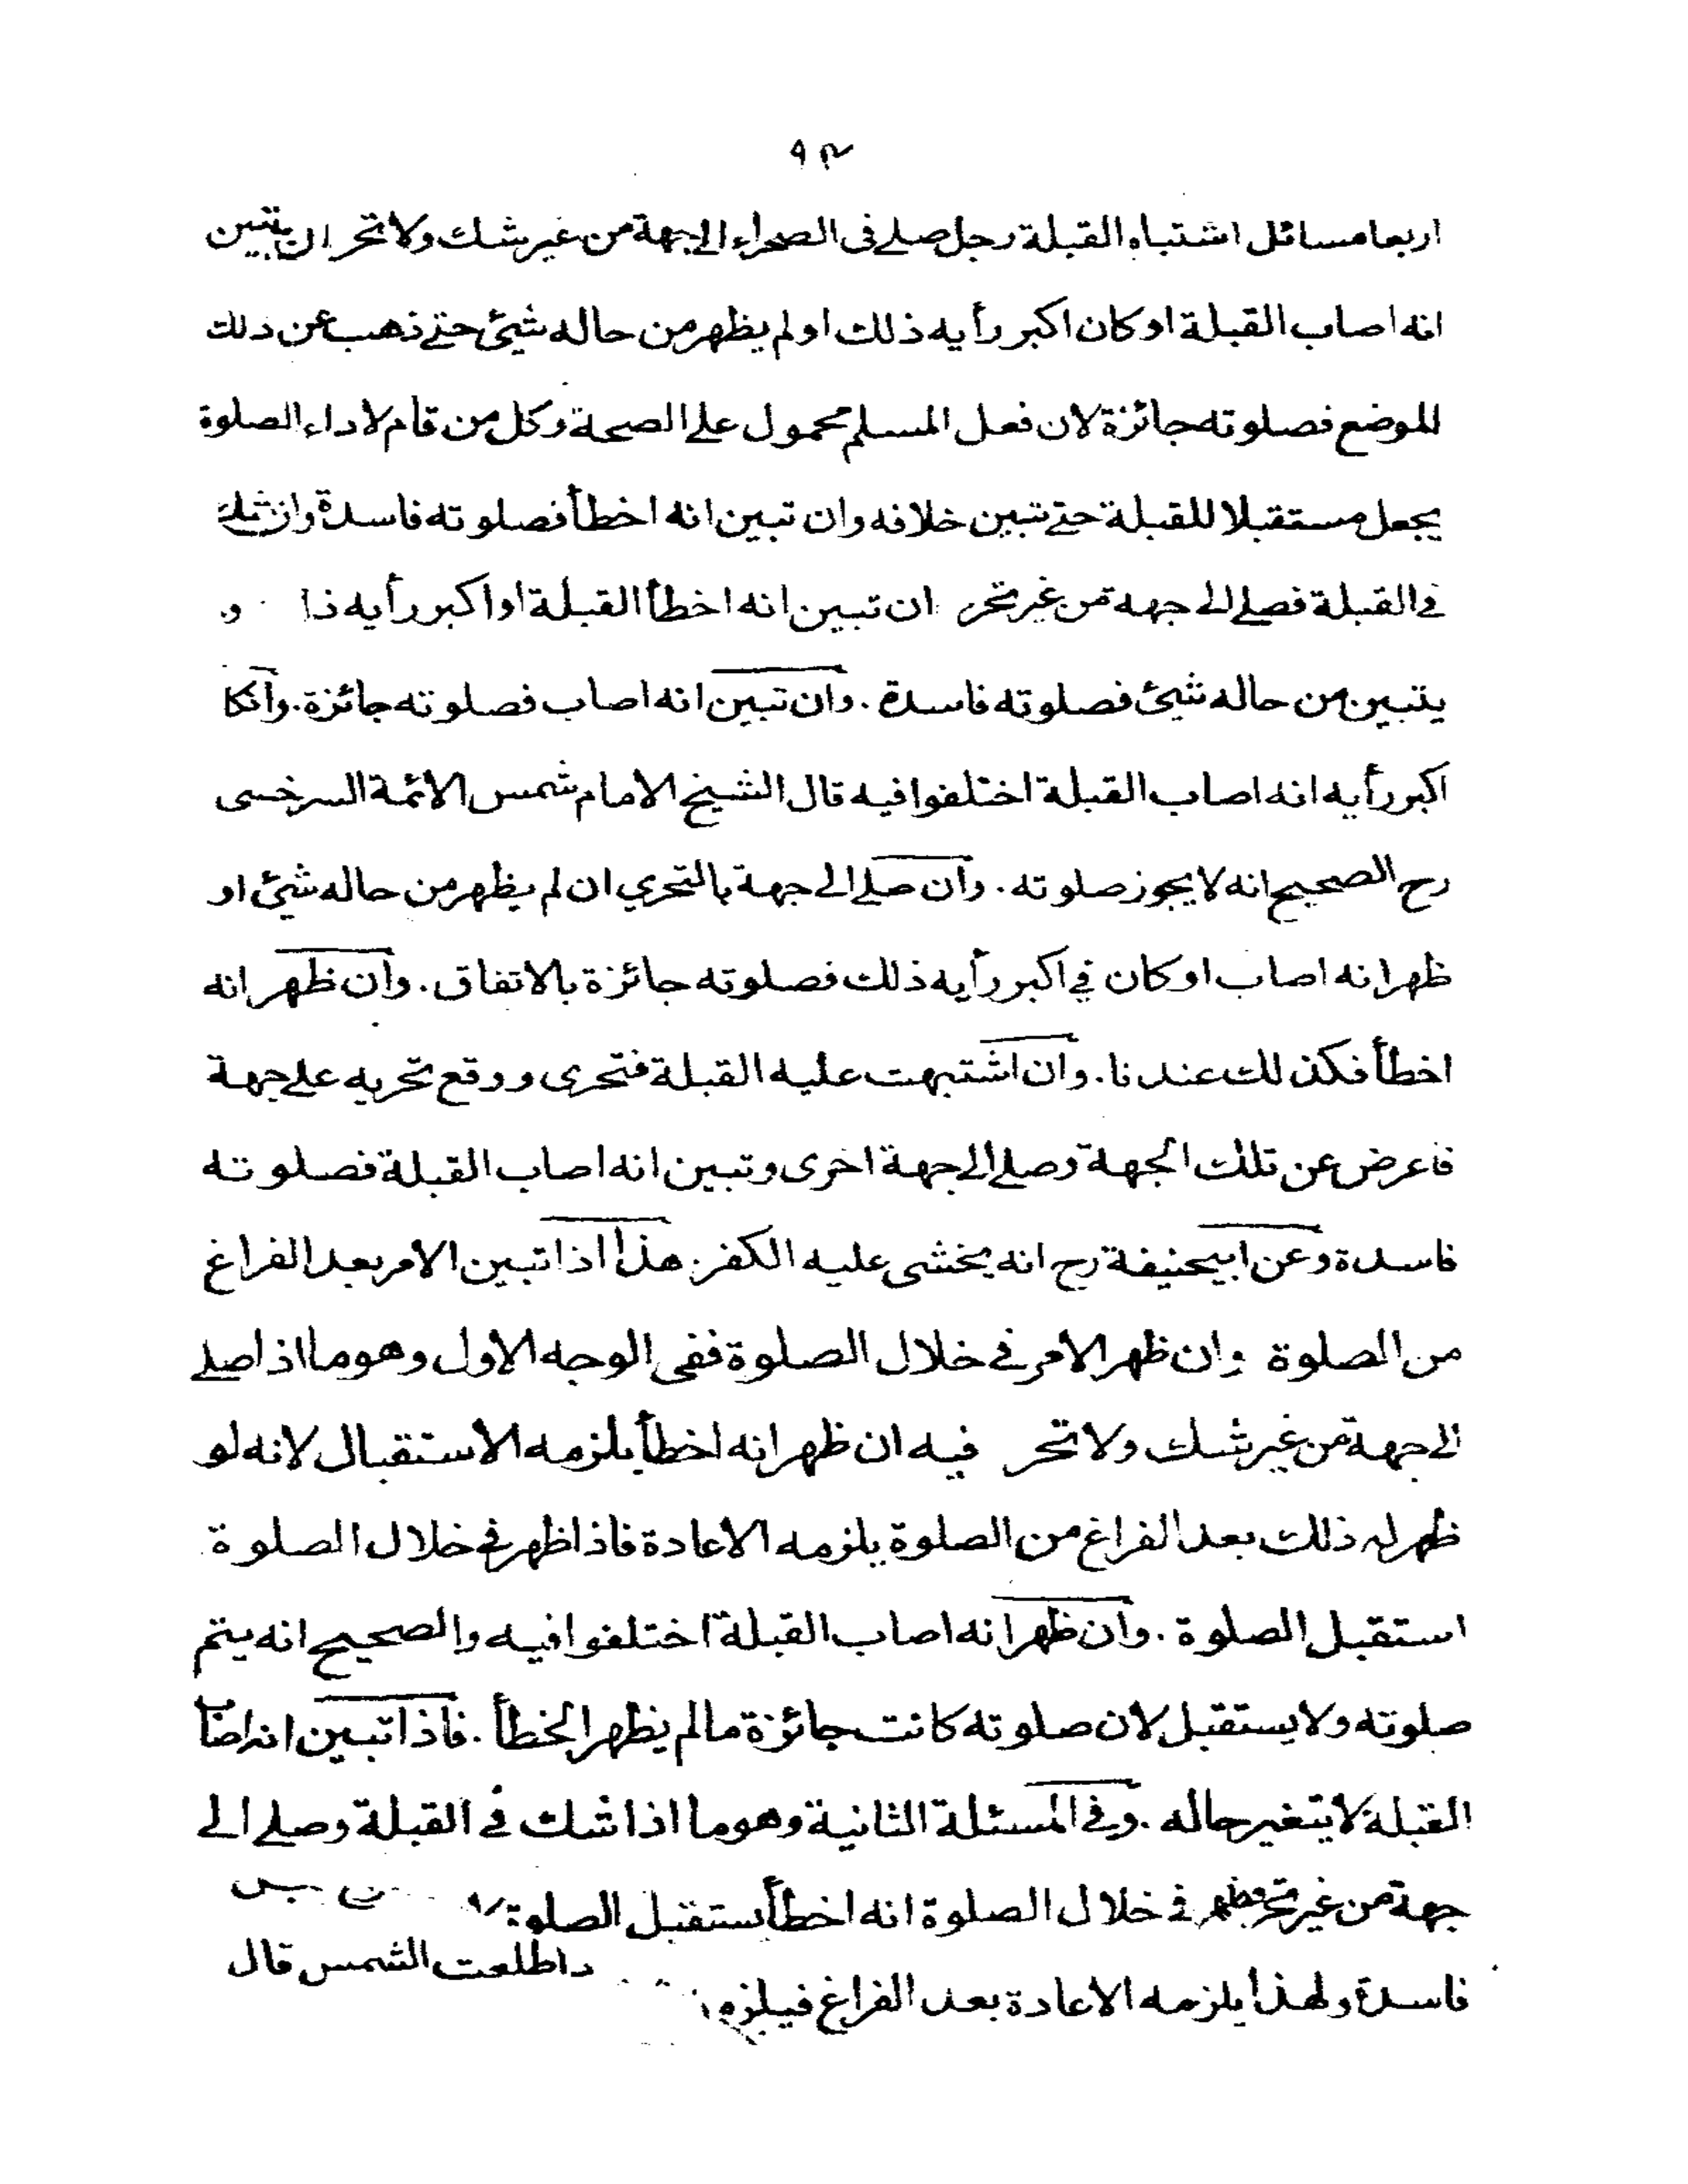 ٩٢
اربعا مسائل اشتباه القبلة رجل صلے فى الصحراء الى جهة من غير شك ولا تحر ان تبين
انه اصاب القبلة او كان اكبر رأيه ذلك او لم يظهر من حاله شيئ حتے ذهب عن ذلك
الموضع فصلوته جائزة لان فعل المسلم محمول علے الصحة وكل من قام لاداء الصلوة
يجعل مستقبلا للقبلة حتے تبين خلافه وان تبين انه اخطأ فصلوته فاسدة وان شك
فے القبلة فصلے الى جهة من غير تحر ان تبين انه اخطأ القبلة او اكبر رأيه
يتبين من حاله شيئ فصلوته فاسدة . وان تبين انه اصاب فصلوته جائزة . وانكا
اكبر رأيه انه اصاب القبلة اختلفوا فيه قال الشيخ الامام شمس الائمة السرخسى
رح الصحيح انه لا يجوز صلوته . وان صلے الى جهة بالتحري ان لم يظهر من حاله شيئ او
ظهر انه اصاب او كان في اكبر رأيه ذلك فصلوته جائزة بالاتفاق . وان ظهر انه
اخطأ فكذلك عندنا . وان اشتبهت عليه القبلة فتحرى ووقع تحريه علے جهة
فاعرض عن تلك الجهة وصلے الى جهة اخرى وتبين انه اصاب القبلة فصلوته
فاسدة وعن ابيحنيفة رح انه يخشى عليه الكفر . هذا اذا تبين الامر بعد الفراغ
من الصلوة وان ظهر الامر فے خلال الصلوة ففى الوجه الاول وهو ما اذا صلے
الى جهة من غير شك ولا تحر فيه ان ظهر انه اخطأ يلزمه الاستقبال لانه لو
ظهر له ذلك بعد الفراغ من الصلوة يلزمه الاعادة فاذا ظهر فے خلال الصلوة
استقبل الصلوة . وان ظهر انه اصاب القبلة اختلفوا فيه والصحيح انه يتم
صلوته ولا يستقبل لان صلوته كانت جائزة مالم يظهر الخطأ . فاذا تبين انه اصاب
القبلة لا يتغير حاله . وفے المسئلة الثانية وهو ما اذا شك فے القبلة وصلے الى
جهة من غير تحر وظهر فے خلال الصلوة انه اخطأ يستقبل الصلوة
فاسدة ولهذا يلزمه الاعادة بعد الفراغ فيلزمه طلعت الشمس قال